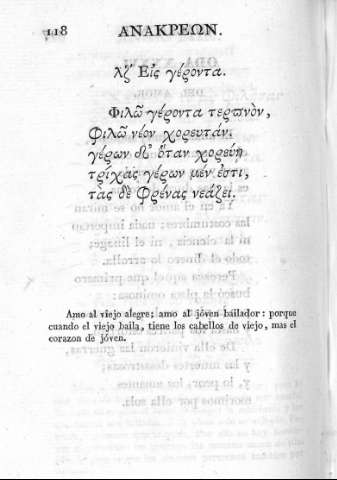 118 ΑΝΑΚΡΕΩΝ.
λζ´ Εἰς γέροντα.
Φιλῶ γέροντα τερπνὸν,
Φιλῶ νέον χορευτάν.
γέρων δ᾽ ὅταν χορεύῃ
τρίχας γέρων μέν ἐστι,
τας δὲ φρένας νεάζει.
Amo al viejo alegre; amo al jóven bailador: porque
cuando el viejo baila, tiene los cabellos de viejo, mas el
corazon de jóven.